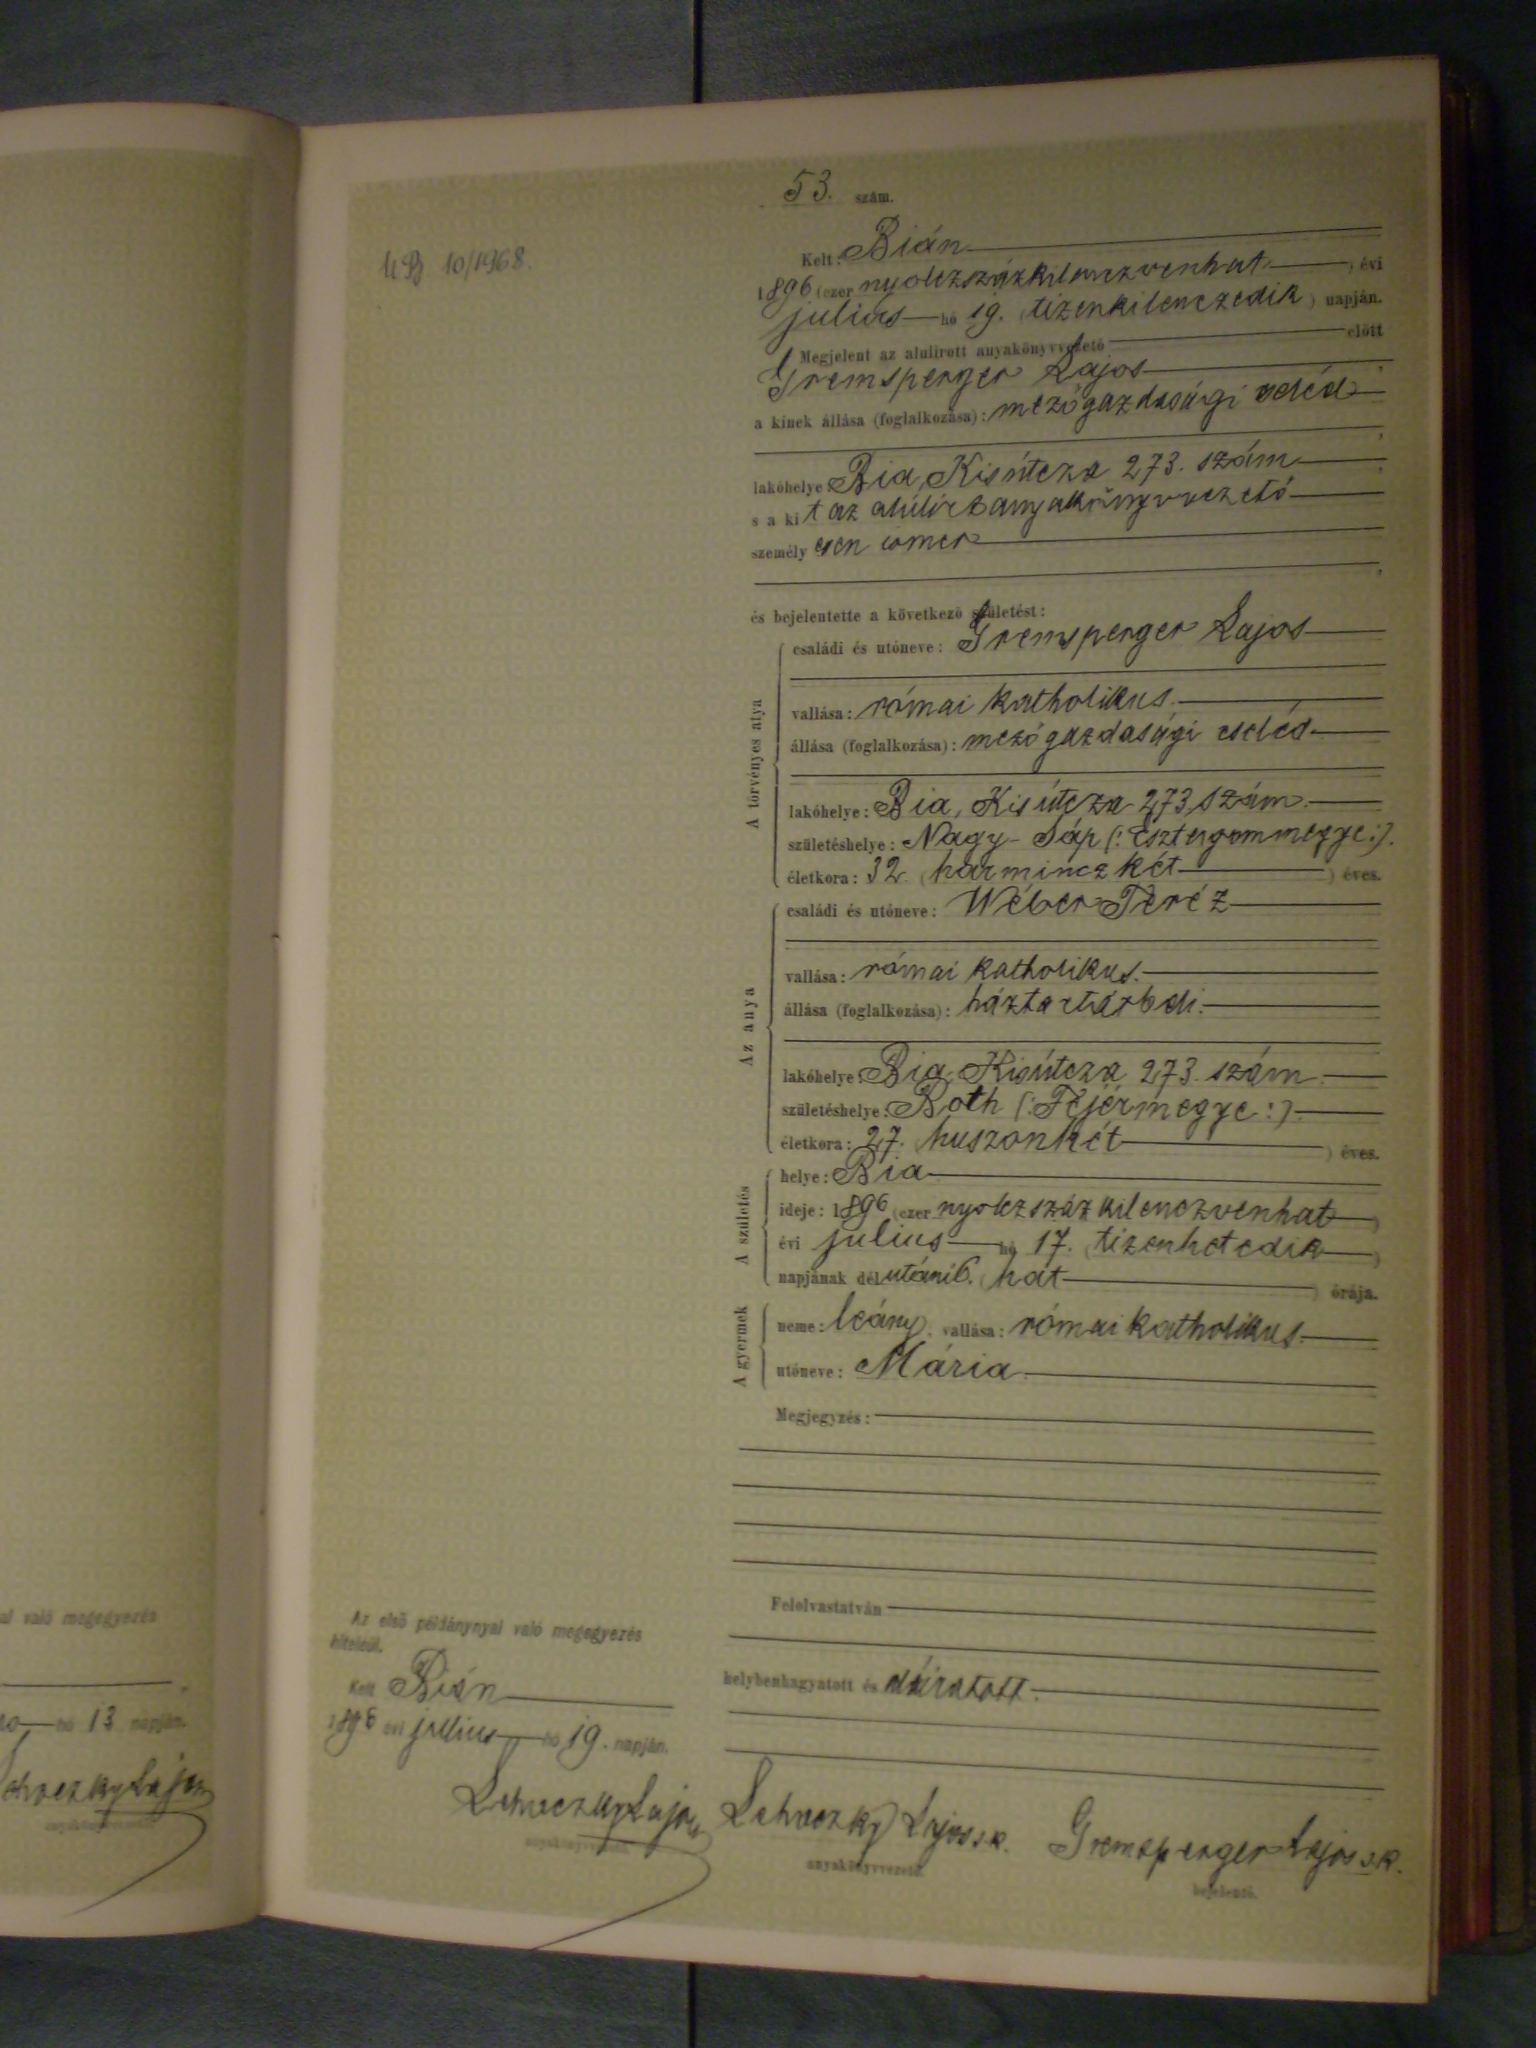 53. szám.
UB 10/1968.
Kelt: Bián
1896 (ezer nyolczszázkilenczvenhat) évi
julius hó 19. (tizenkilenczedik) napján.
Megjelent az alulirott anyakönyvvezető előtt
Gremsperger Lajos
a kinek állása (foglalkozása): mezőgazdasági cseléd
lakóhelye Bia, Kisútcza 273. szám
s a kit az alúlirt anyakönyvvezető
személyesen ismer
és bejelentette a következő születést:
A törvényes atya
családi és utóneve: Gremsperger Lajos
vallása: római katholikus.
állása (foglalkozása): mezőgazdasági cseléd
lakóhelye: Bia, Kisútcza 273 szám.
születéshelye: Nagy-Sáp (: Esztergommegye:).
életkora: 32. (harminczkét) éves.
Az anya
családi és utóneve: Wéber Teréz
vallása: római katholikus.
állása (foglalkozása): háztartásbeli.
lakóhelye: Bia, Kisútcza 273. szám.
születéshelye: Both (: Fejérmegye:).
életkora: 27. (huszonhét) éves.
A születés
helye: Bia
ideje: 1896 (ezer nyolczszáz kilenczvenhat)
évi julius hó 17. (tizenhetedik)
napjának délutáni 6. (hat) órája.
A gyermek
neme: leány, vallása: római katholikus.
utóneve: Mária.
Megjegyzés:
Felolvastatván
helybenhagyatott és aláiratott.
Az első példánynyal való megegyezés
hiteléül.
Kelt Bián
1896 évi julius hó 19. napján.
Lehoczky Lajos
anyakönyvvezető.
Lehoczky Lajos s.k.
anyakönyvvezető.
Gremsperger Lajos s.k.
bejelentő.
al való megegyezés
hó 13 napján.
Lehoczky Lajos